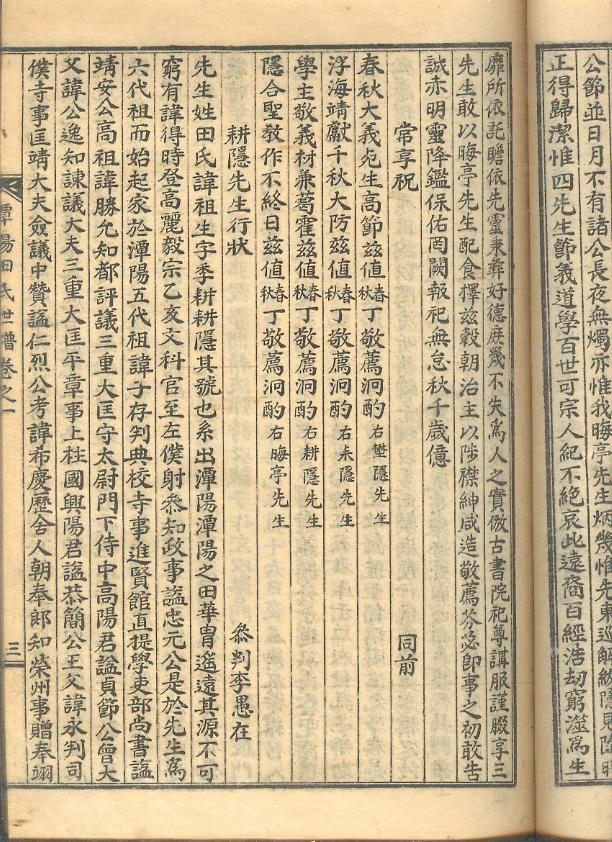 公節並日月不有諸公長夜無燭亦惟我晦亭先生炳幾惟先東巡解紱隱見隨時
正得歸潔惟四先生節義道學百世可宗人紀不絶哀此遠裔百經浩劫窮滋爲生
靡所依託瞻依先靈秉彝好德庶幾不失爲人之實倣古書院祀尊講服謹腏享三
先生敢以晦亭先生配食擇玆穀朝治主以陟襟紳咸造敬薦芬苾即事之初敢告
誠赤明靈降鑑保佑罔闕報祀無怠秋千歲億
常享祝 同前
春秋大義宛生高節玆値春秋丁敬薦泂酌右壄隱先生
浮海靖獻千秋大防玆値春秋丁敬薦泂酌右耒隱先生
學主敬義材兼葛霍玆値春秋丁敬薦泂酌右耕隱先生
隱合聖敎作不終日玆値春秋丁敬薦泂酌右晦亭先生
耕隱先生行狀 叅判李愚在
先生姓田氏諱祖生字季耕耕隱其號也系出潭陽潭陽之田華胄遙遠其源不可
窮有諱得時登高麗毅宗乙亥文科官至左僕射叅知政事謚忠元公是於先生爲
六代祖而始起家於潭陽五代祖諱子存判典校寺事進賢館直提學吏部尚書謚
靖安公高祖諱勝允知都評議三重大匡守太尉門下侍中高陽君謚貞節公曾大
父諱公逸知諫議大夫三重大匡平章事上柱國興陽君謚恭簡公王父諱永判司
僕寺事匡靖大夫僉議中贊謚仁烈公考諱希慶歷舍人朝奉郎知榮州事贈奉翊
潭陽田氏世譜卷之一 三